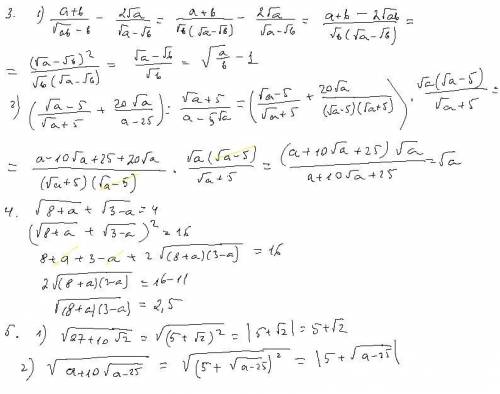 3. 1) (a+b)/(√ab − b) − 2√a/(√a−√b) = (a+b)/(√b(√a−√b)) − 2√a/(√a−√b) = (a+b−2√ab)/(√b(√a−√b)) =
= (√a−√b)²/(√b(√a−√b)) = (√a−√b)/√b = √(a/b) − 1
2) ((√a−5)/(√a+5) + 20√a/(a−25)) : (√a+5)/(a−5√a) = ((√a−5)/(√a+5) + 20√a/((√a−5)(√a+5))) · √a(√a−5)/(√a+5) =
= (a−10√a+25+20√a)/((√a+5)(√a−5)) · √a(√a−5)/(√a+5) = (a+10√a+25)√a/(a+10√a+25) = √a
4. √(8+a) + √(3−a) = 4
(√(8+a) + √(3−a))² = 16
8+a+3−a + 2√((8+a)(3−a)) = 16
2√((8+a)(3−a)) = 16−11
√((8+a)(3−a)) = 2,5
5. 1) √(27+10√2) = √((5+√2)²) = |5+√2| = 5+√2
2) √(a+10√(a−25)) = √((5+√(a−25))²) = |5+√(a−25)|